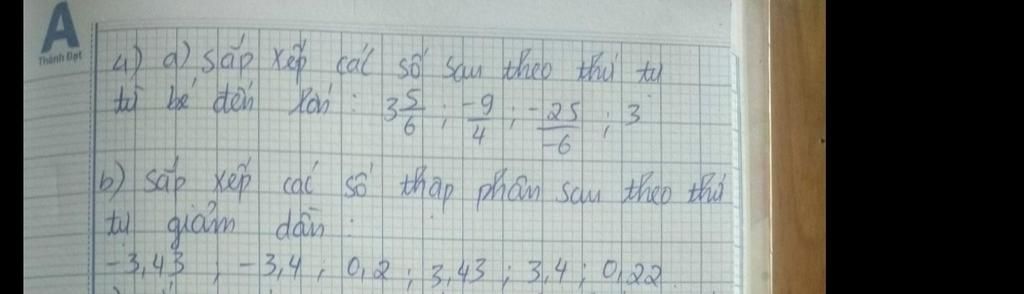 A
Thành Đạt
4) a) sắp xếp các số sau theo thứ tự
từ bé đến lớn : 3 5/6 ; -9/4 ; -25/-6 ; 3
b) sắp xếp các số thập phân sau theo thứ
tự giảm dần :
-3,43 ; -3,4 ; 0,2 ; 3,43 ; 3,4 ; 0,22